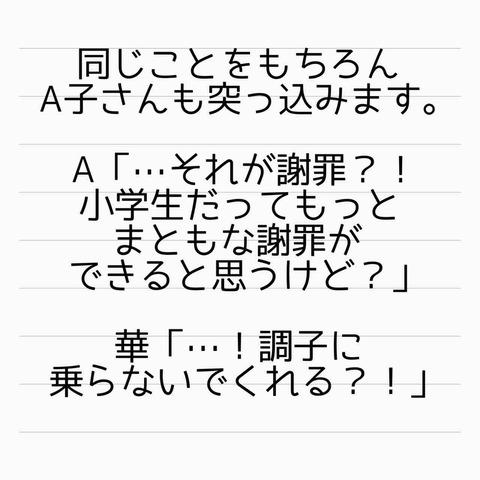 同じことをもちろん
A子さんも突っ込みます。
A「…それが謝罪？！
小学生だってもっと
まともな謝罪が
できると思うけど？」
華「…！調子に
乗らないでくれる？！」